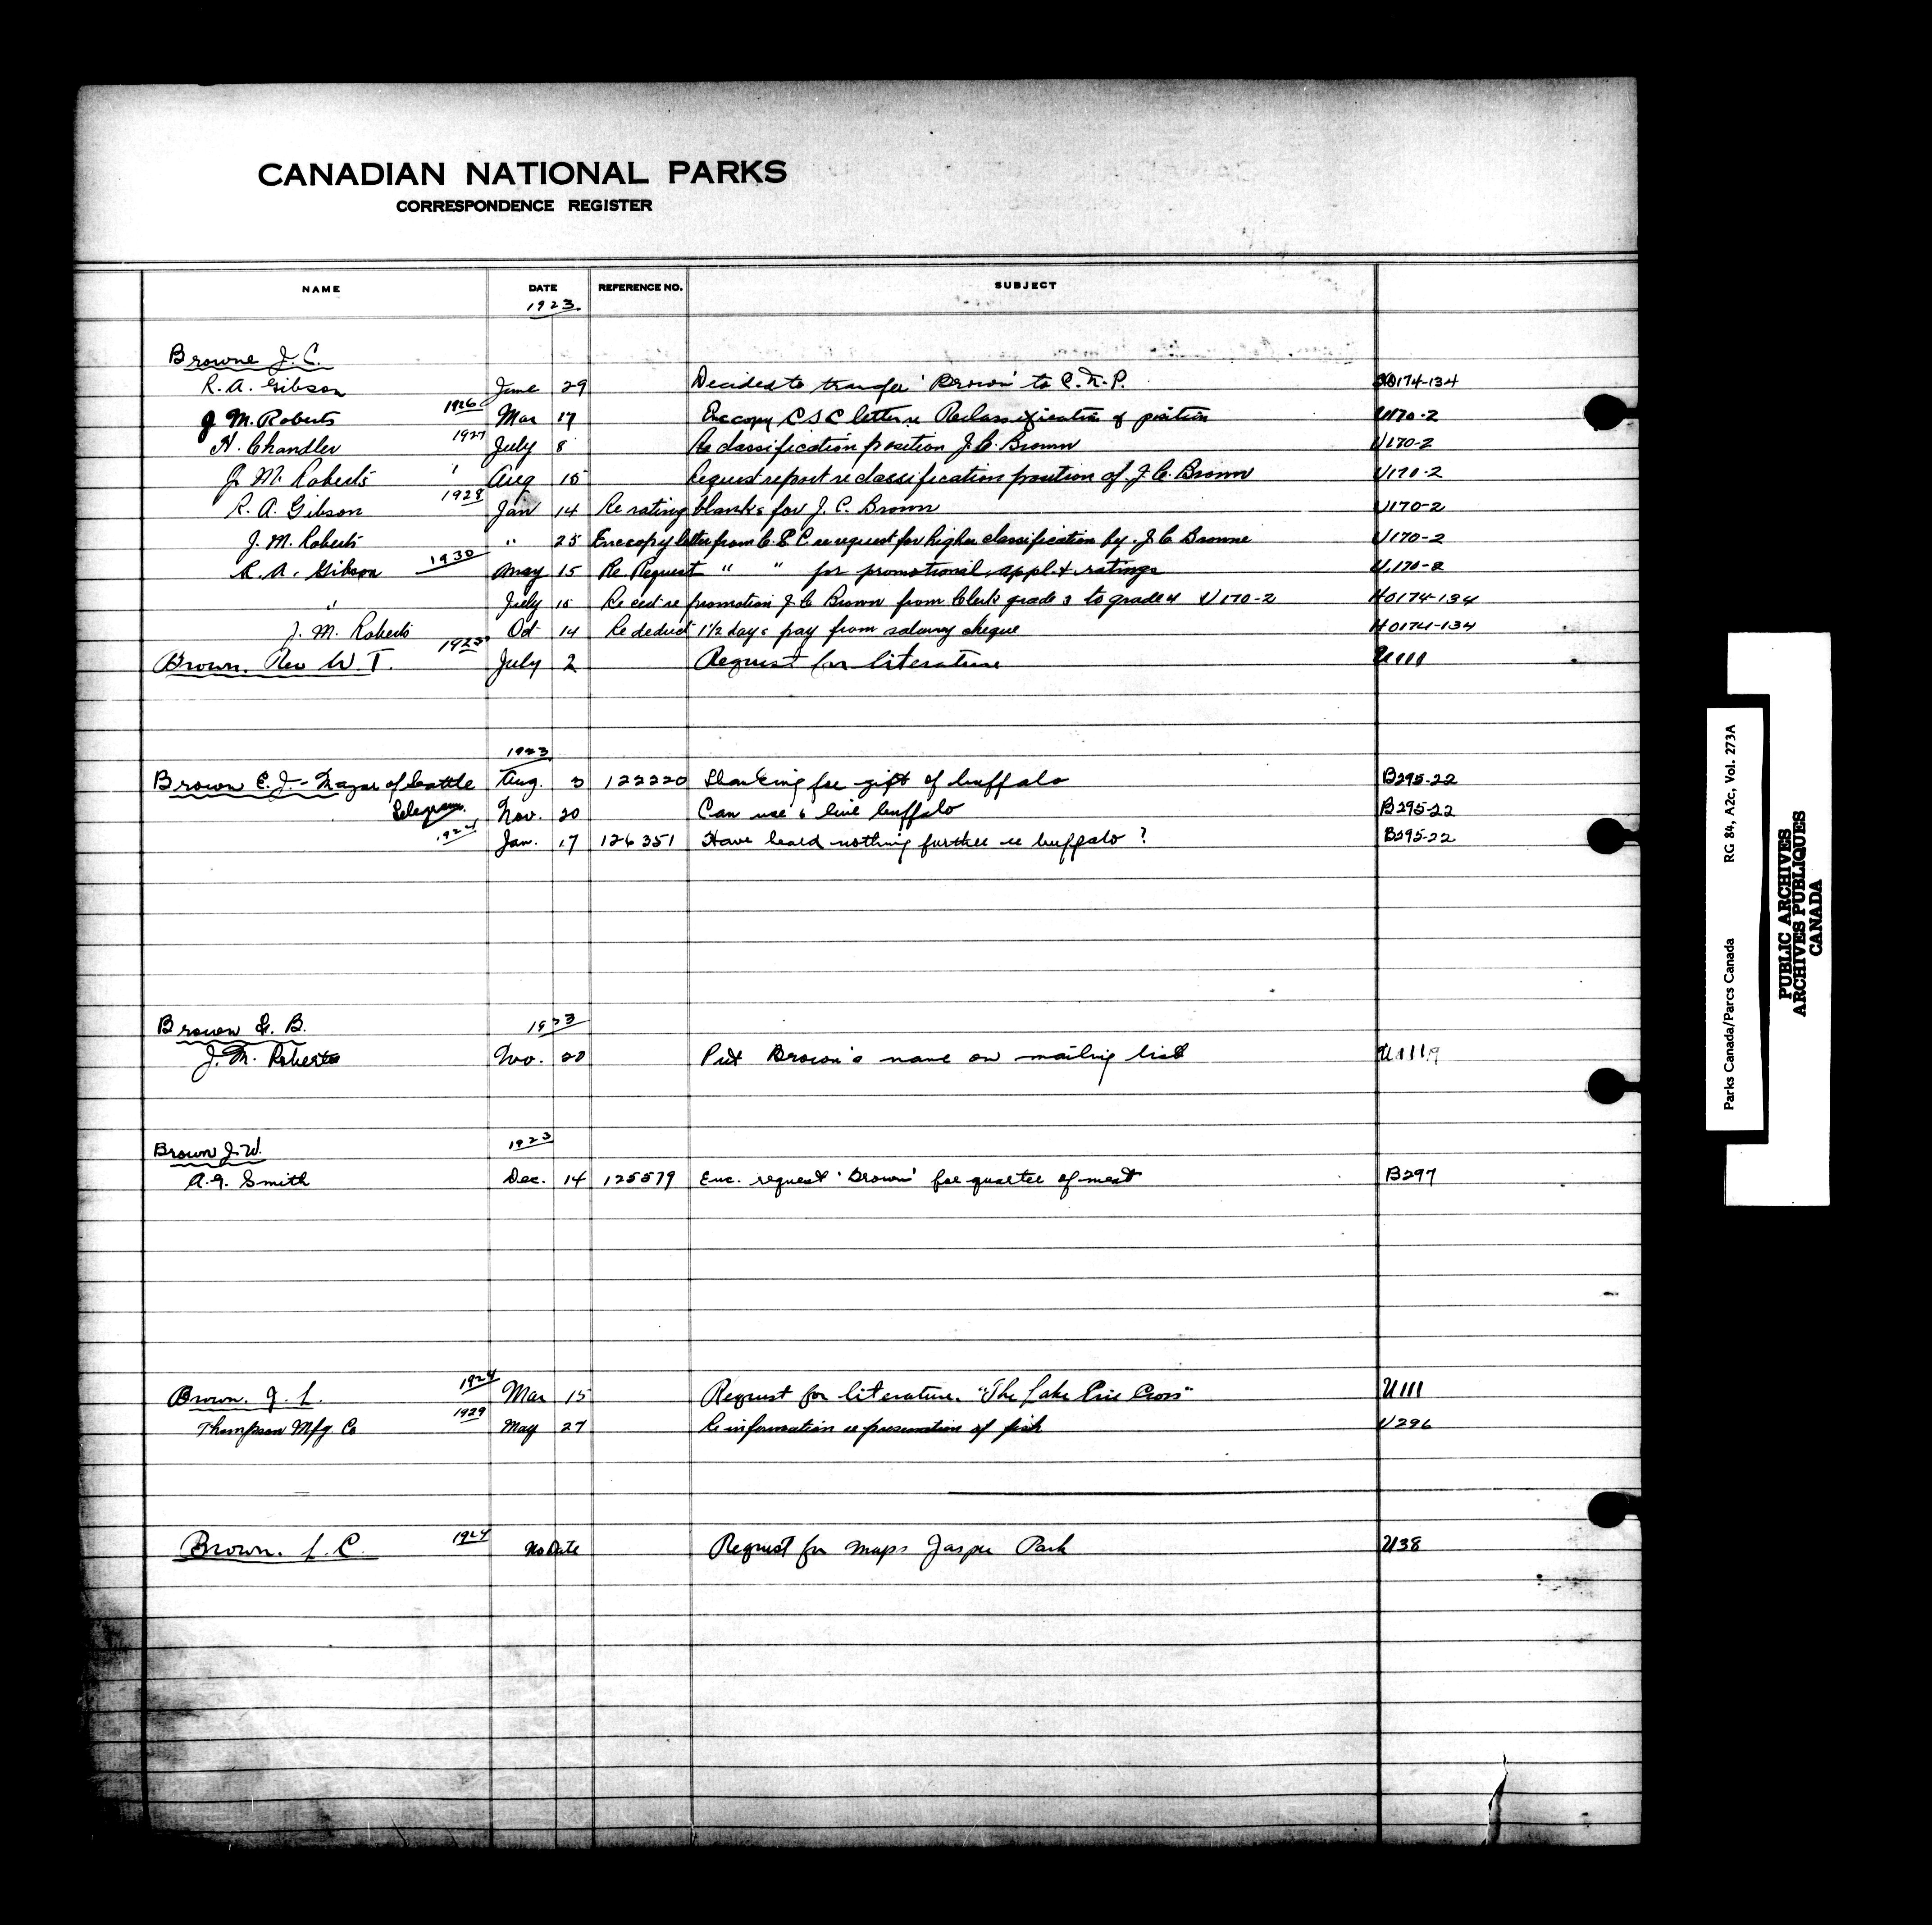 CANADIAN NATIONAL PARKS
CORRESPONDENCE REGISTER
NAME DATE REFERENCE NO. SUBJECT
1923
Browne J. C.
R. A. Gibson June 29 Decided to transfer 'Brown' to C.N.P. HO174-134
J M. Roberts 1926 Mar 17 Enc copy CSC letter re Reclassification of position U170-2
H. Chandler 1927 July 8 Re classification position J. C. Brown U170-2
J. M. Roberts " Aug 15 Request report re classification position of J. C. Brown U170-2
R. A. Gibson 1928 Jan 14 Re rating blanks for J. C. Brown U170-2
J. M. Roberts " 25 Enc copy letter from C.S.C re request for higher classification by J C Browne U170-2
R. A. Gibson 1930 May 15 Re. Request " " for promotional appl. & ratings U170-2
" July 15 Re promotion J. C Brown from Clerk grade 3 to grade 4 U170-2 HO174-134
J. M. Roberts Oct 14 Re deduct 1 1/2 days pay from salary cheque HO174-134
Brown. Rev W. T. 1923 July 2 Request for literature U111
1923
Brown E. J. - Mayor of Seattle Aug. 3 122220 Thanking for gift of buffalo B295-22
Telegram. Nov. 20 Can use 6 live buffalo B295-22
1924 Jan. 17 126351 Have heard nothing further re buffalo ? B295-22
Brown G. B. 1923
J. M. Roberts Nov. 20 Put Brown's name on mailing list U111.9
Brown J. W. 1923
A. G. Smith Dec. 14 125579 Enc. request 'Brown' for quarter of meat B297
Brown. J. L. 1924 Mar 15 Request for literature. "The Lake Erie Cross" U111
Thompson Mfg. Co 1929 May 27 Re information re preservation of fish U296
Brown. L. C. 1924 No Date Request for maps Jasper Park U38
Parks Canada/Parcs Canada RG 84, A2c, Vol. 273A
PUBLIC ARCHIVES
ARCHIVES PUBLIQUES
CANADA